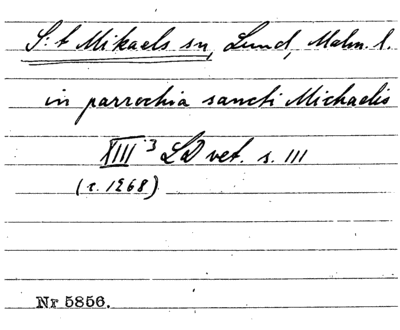 S:t Mikaels sn, Lund, Malm. l.
in parrochia sancti Michaelis
XIII 3 LD vet. s. III
(c. 1268)
Nr 5856.